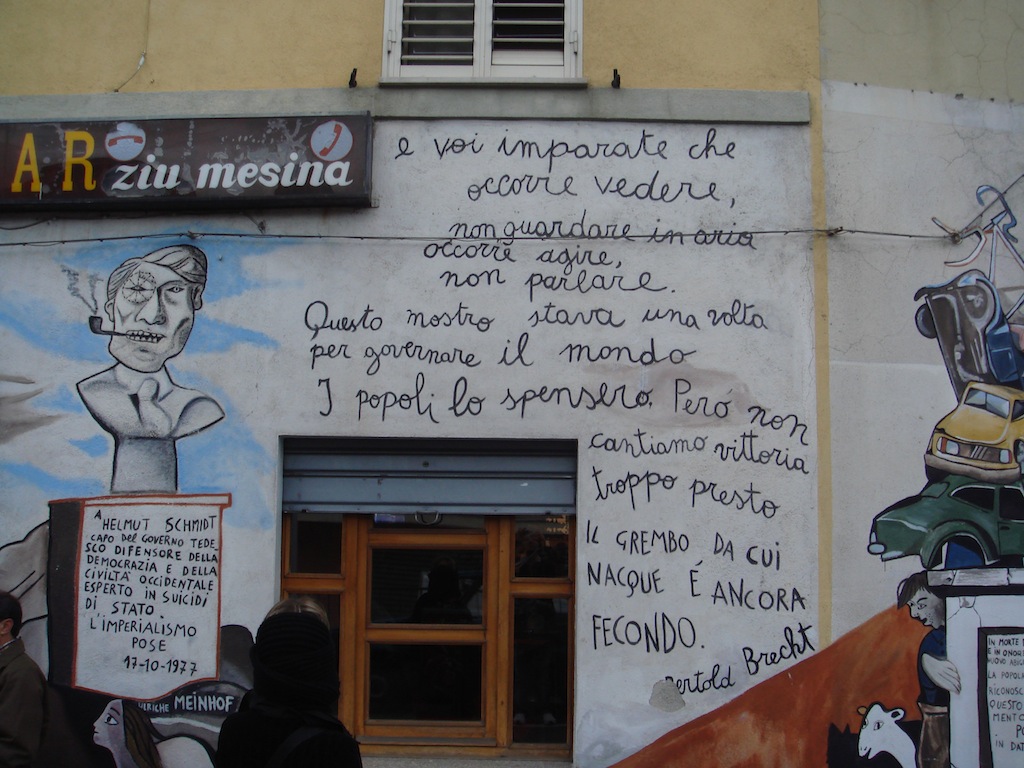 AR ziu mesina
e voi imparate che
occorre vedere,
non guardare in aria
occorre agire,
non parlare.
Questo mostro stava una volta
per governare il mondo
I popoli lo spensero. Però non
cantiamo vittoria
troppo presto
IL GREMBO DA CUI
NACQUE É ANCORA
FECONDO.
Bertold Brecht
A
HELMUT SCHMIDT
CAPO DEL GOVERNO TEDE-
SCO DIFENSORE DELLA
DEMOCRAZIA E DELLA
CIVILTÀ OCCIDENTALE
ESPERTO IN SUICIDI
DI STATO.
L'IMPERIALISMO
POSE
17-10-1977
ULRICHE MEINHOF
IN MORTE
E IN ONORE
NUOVO
LA POPOLA
RICONOSC
QUESTO
MENTO
PO
IN DAT